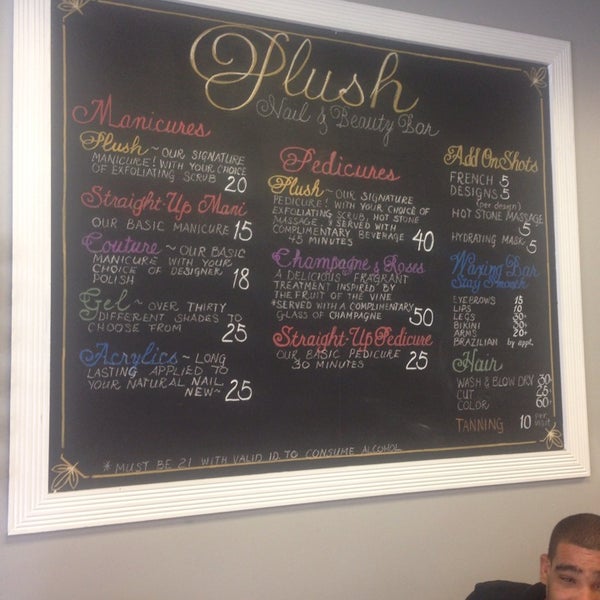 Plush
Nail & Beauty Bar
Manicures
Plush ~ OUR SIGNATURE
MANICURE! WITH YOUR CHOICE
OF EXFOLIATING SCRUB 20
Straight-Up Mani
OUR BASIC MANICURE 15
Couture ~ OUR BASIC
MANICURE WITH YOUR
CHOICE OF DESIGNER
POLISH 18
Gel ~ OVER THIRTY
DIFFERENT SHADES TO
CHOOSE FROM 25
Acrylics ~ LONG
LASTING APPLIED TO
YOUR NATURAL NAIL.
NEW~ 25
Pedicures
Plush ~ OUR SIGNATURE
PEDICURE! WITH YOUR CHOICE OF
EXFOLIATING SCRUB, HOT STONE
MASSAGE, & SERVED WITH
COMPLIMENTARY BEVERAGE
45 MINUTES 40
Champagne & Roses
A DELICIOUS FRAGRANT
TREATMENT INSPIRED BY
THE FRUIT OF THE VINE
SERVED WITH A COMPLIMENTARY
GLASS OF CHAMPAGNE 50
Straight-Up Pedicure
OUR BASIC PEDICURE
30 MINUTES 25
Add On Shots
FRENCH 5
DESIGNS 5
(per design)
HOT STONE MASSAGE
5
HYDRATING MASK 5
Waxing Bar
Stay Smooth
EYEBROWS 15
LIPS 10
LEGS 50+
BIKINI 30+
ARMS 20+
BRAZILIAN by appt.
Hair
WASH & BLOW DRY 30+
CUT 25
COLOR 60+
TANNING 10 per visit
* MUST BE 21 WITH VALID ID. TO CONSUME ALCOHOL